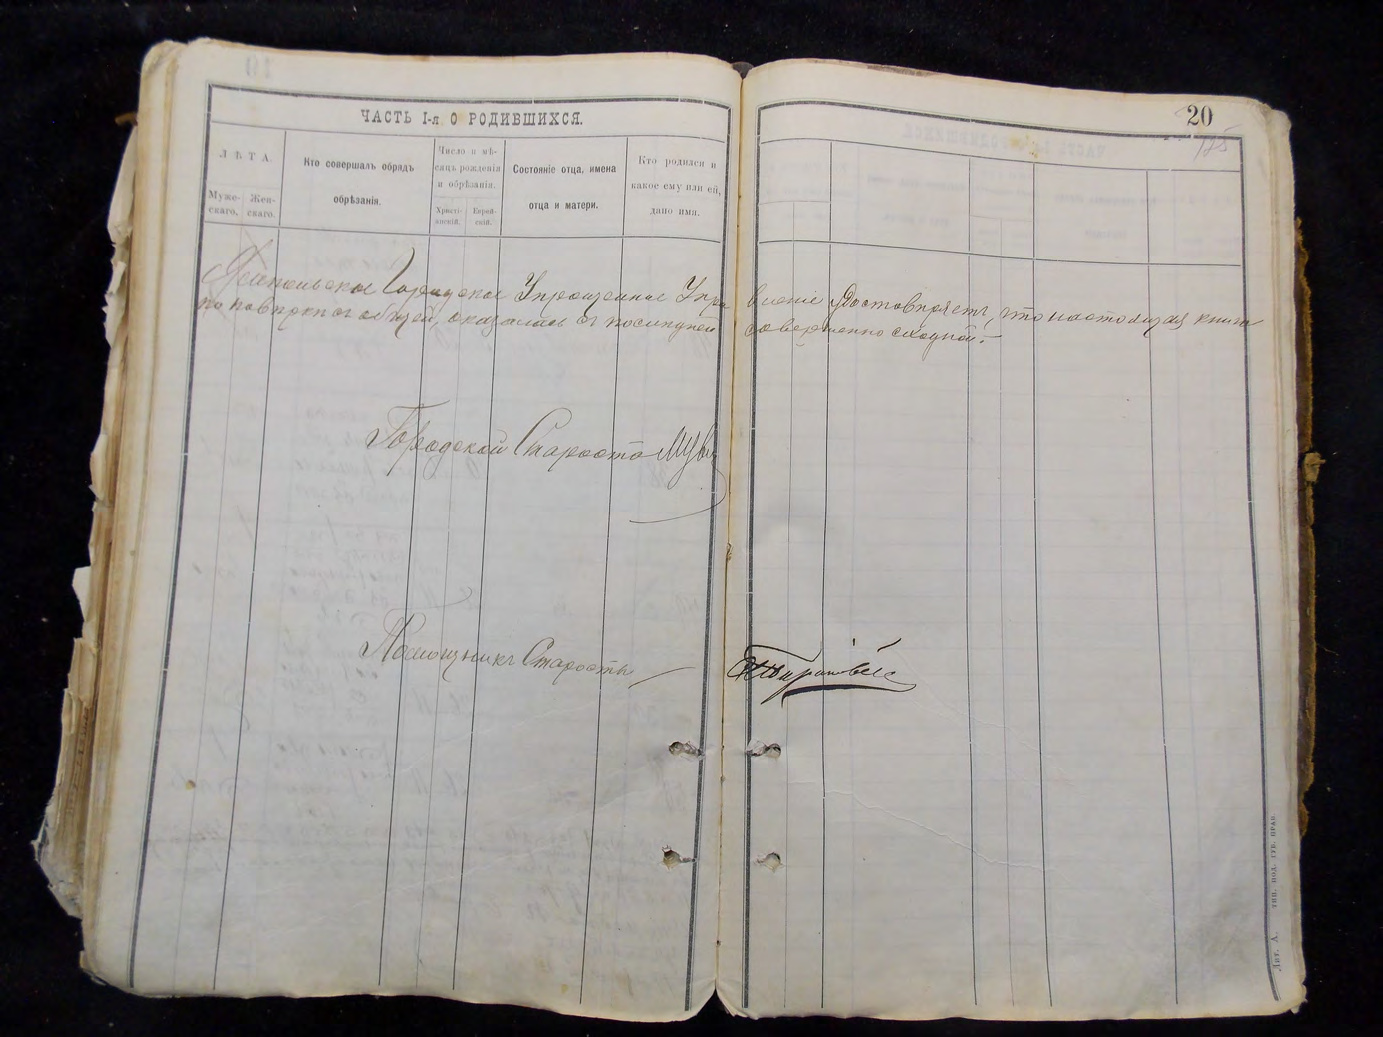 20
125
ЧАСТЬ I-я О РОДИВШИХСЯ.
ЛѢТА.
Муже-
скаго.
Жен-
скаго.
Кто совершалъ обрядъ
обрѣзанія.
Число и мѣ-
сяцъ рожденія
и обрѣзанія.
Христі-
анскій.
Еврей-
скій.
Состояніе отца, имена
отца и матери.
Кто родился и
какое ему или ей,
дано имя.
Городское Упрощенное Управленіе удостовѣряетъ, что настоящая книга
по повѣркѣ съ оказалась съ послѣдней совершенно сходной.
Городской Староста
Помощникъ Старосты
Лит. А. тип. под. губ. прав.